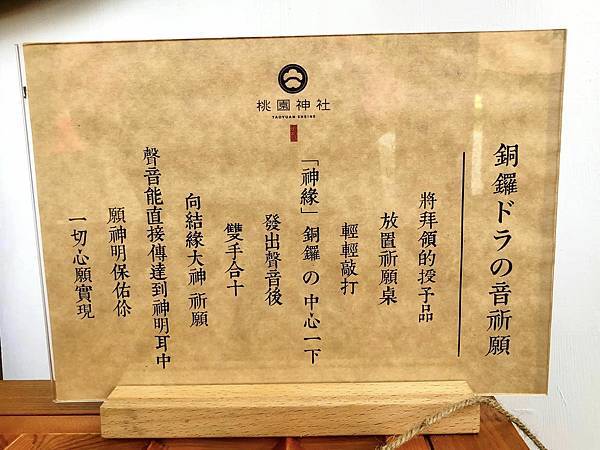 桃園神社
TAOYUAN SHRINE
銅鑼ドラの音祈願
將拜領的授予品
放置祈願桌
輕輕敲打
「神緣」銅鑼 の 中心一下
發出聲音後
雙手合十
向結緣大神 祈願
聲音能直接傳達到神明耳中
願神明保佑你
一切心願實現